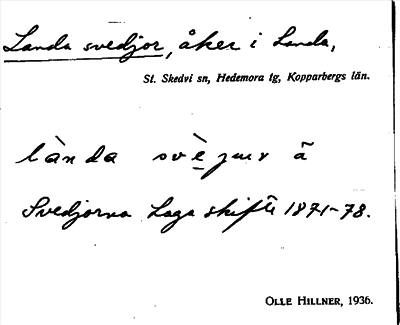 Landa svedjor, åker i Landa,
St. Skedvi sn, Hedemora tg, Kopparbergs län.
lànda svè̱jur ä
Svedjorna Laga skifte 1871-78.
OLLE HILLNER, 1936.